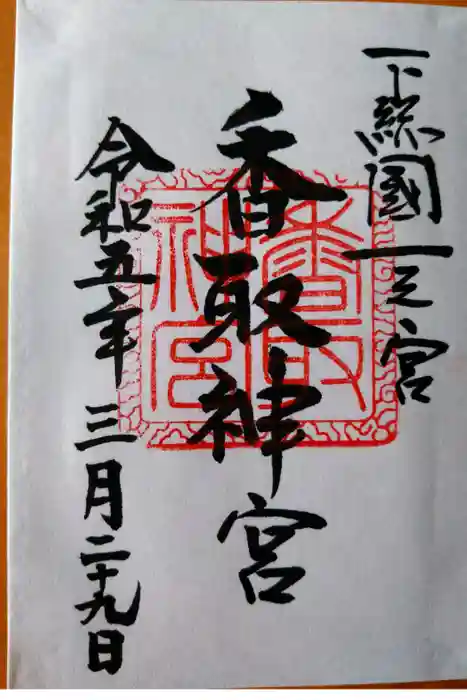 下総國一之宮
香取神宮
香取神印
令和五年三月二十九日